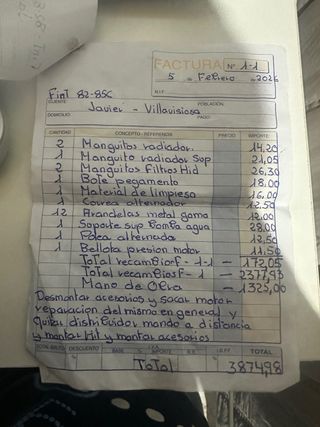 FACTURA Nº 1-1
5 de Febrero de 2026
N.I.F.
Fint 82-85C
CLIENTE Javier - Villaviciosa POBLACIÓN
DOMICILIO PAGO
CANTIDAD CONCEPTO-REFERENCIA PRECIO IMPORTE
2 Manguitos radiador. 14,20
1 Manguito radiador Sop 21,05
2 Manguitos Filtros Hid 26,30
1 Bote pegamento 18.00
1 Material de limpiesa 16.00
1 Correa alternador 12.50
12 Arandelas metal goma 12,00
1 Soporte sup bomba agua 28.00
1 Polea alternador 12,50
1 Bellota presion motor 11,50
Total recambiosf - 1-1 - 172,05
Total recambiosf - 1 - 2377,93
Mano de Obra - 1325,00
Desmontar acesorios y sacar motor
reparacion del mismo en general y
quitar distribuidor mando a distancia
y montar Hil y montar acesorios
TOTAL BRUTO DESCUENTO BASE I.V.A. % IMPORTE R.E. I.R.P.F. TOTAL
Total 3874,98